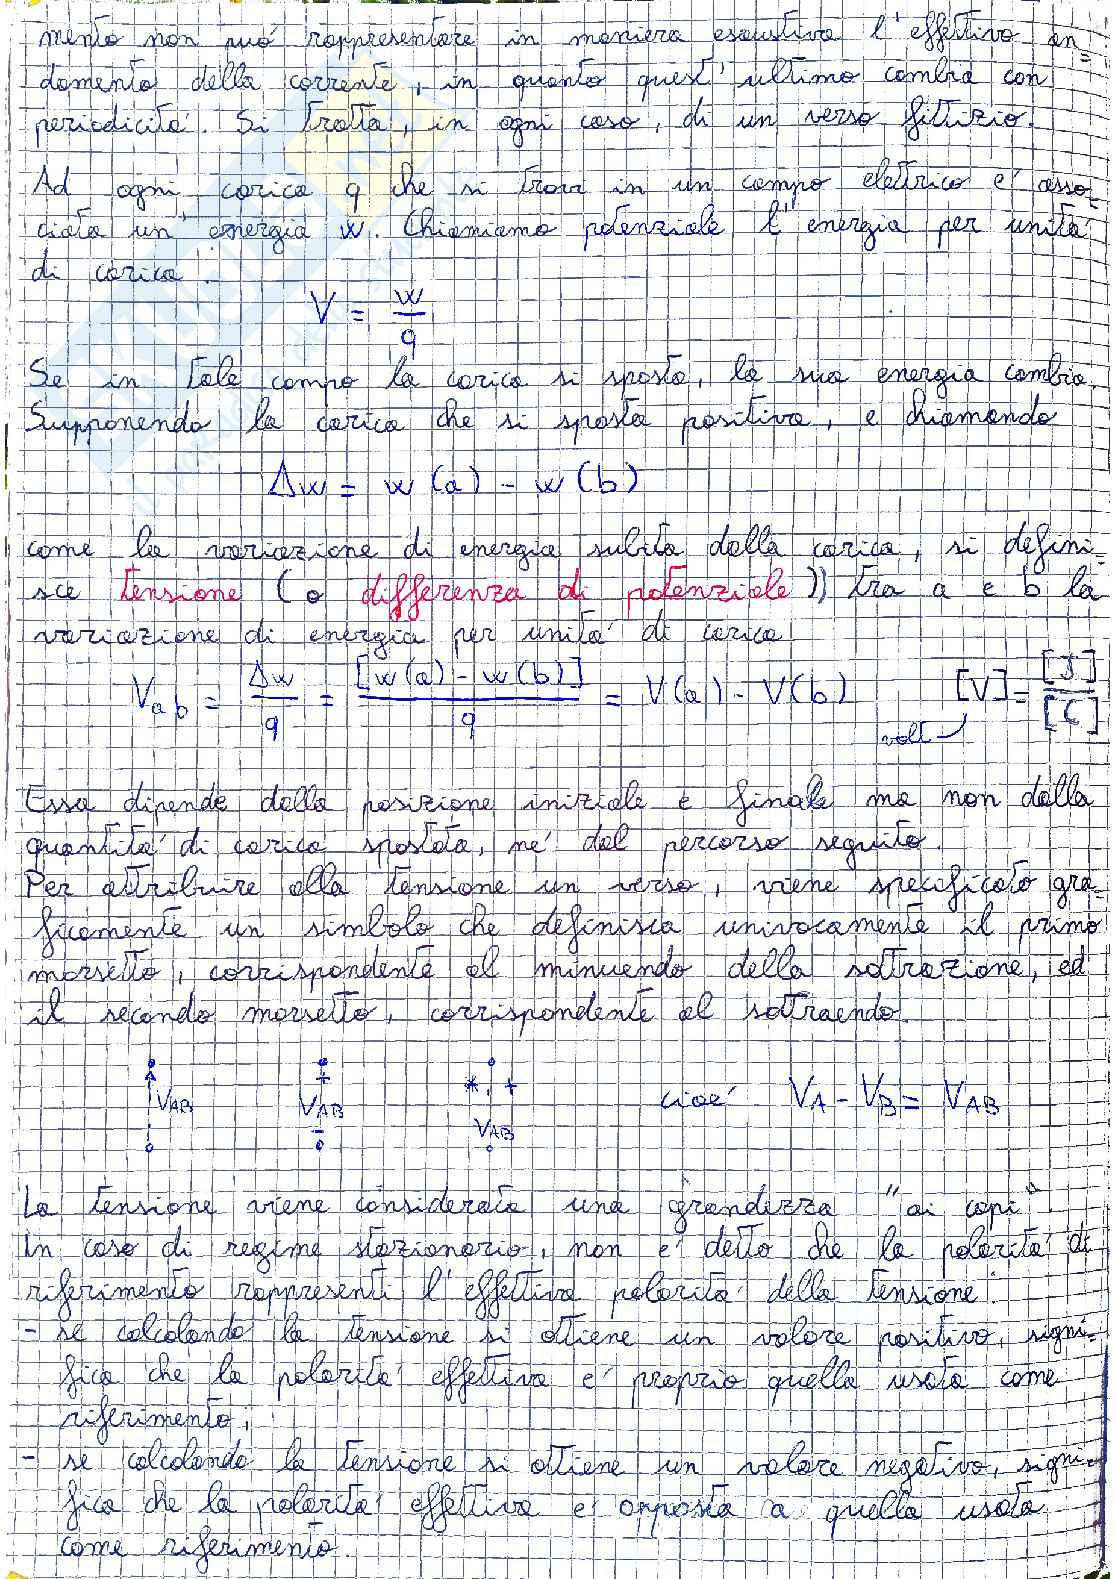 mento non può rappresentare in maniera esaustiva l'effettivo an=
damento della corrente, in quanto quest'ultimo cambia con
periodicità. Si tratta, in ogni caso, di un verso fittizio.
Ad ogni carica q che si trova in un campo elettrico è asso-
ciata un'energia w. Chiamiamo potenziale l'energia per unità
di carica.
V = w/q
Se in tale campo la carica si sposta, la sua energia cambia.
Supponendo la carica che si sposta positiva, e chiamando
Δw = w(a) - w(b)
come la variazione di energia subita dalla carica, si defini=
sce tensione (o differenza di potenziale)) tra a e b la
variazione di energia per unità di carica
Vab = Δw/q = [w(a) - w(b)]/q = V(a) - V(b) [V] = [J]/[C]
volt
Essa dipende dalla posizione iniziale e finale ma non dalla
quantità di carica spostata, né dal percorso seguito.
Per attribuire alla tensione un verso, viene specificato gra-
ficamente un simbolo che definisca univocamente il primo
morsetto, corrispondente al minuendo della sottrazione, ed
il secondo morsetto, corrispondente al sottraendo.
VAB + VAB - * + VAB cioè VA - VB = VAB
La tensione viene considerata una grandezza "ai capi".
In caso di regime stazionario, non è detto che la polarità di
riferimento rappresenti l'effettiva polarità della tensione:
- se calcolando la tensione si ottiene un valore positivo, signi=
fica che la polarità effettiva è proprio quella usata come
riferimento;
- se calcolando la tensione si ottiene un valore negativo, signi-
fica che la polarità effettiva è opposta a quella usata
come riferimento.